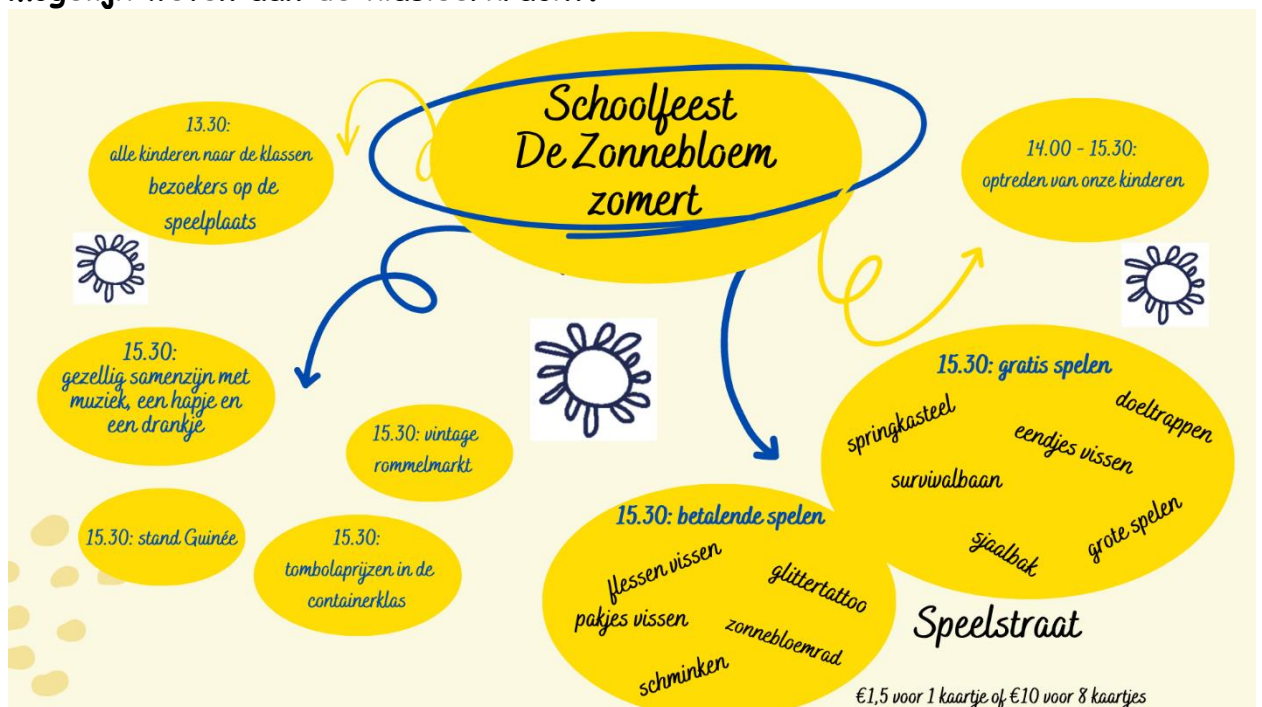 Schoolfeest
De Zonnebloem
zomert
13.30:
alle kinderen naar de klassen
bezoekers op de
speelplaats
14.00 - 15.30:
optreden van onze kinderen
15.30:
gezellig samenzijn met
muziek, een hapje en
een drankje
15.30: vintage
rommelmarkt
15.30: stand Guinée
15.30:
tombolaprijzen in de
containerklas
15.30: betalende spelen
flessen vissen
glittertattoo
pakjes vissen
zonnebloemrad
schminken
15.30: gratis spelen
springkasteel
doeltrappen
eendjes vissen
survivalbaan
sjaalbak
grote spelen
Speelstraat
€1,5 voor 1 kaartje of €10 voor 8 kaartjes